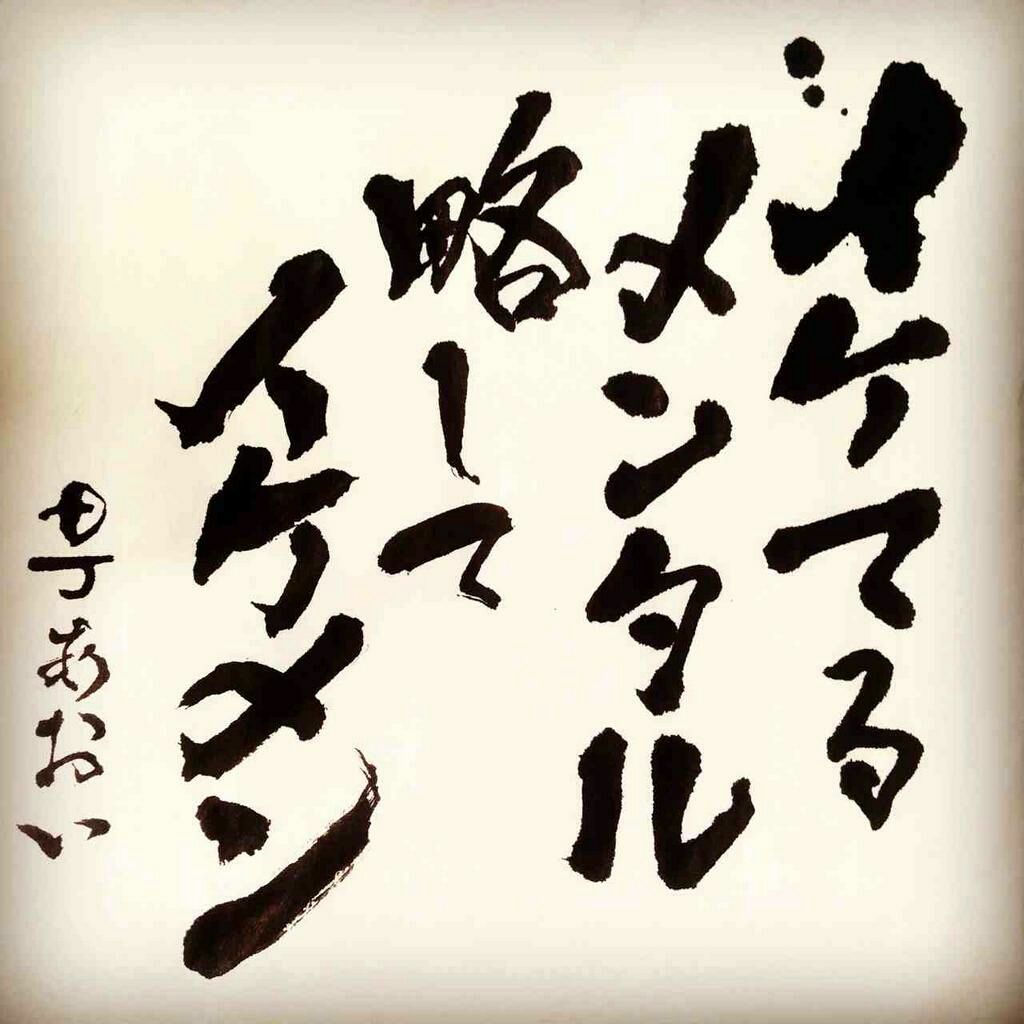 イケてる
メンタル
略して
イケメン
あおい